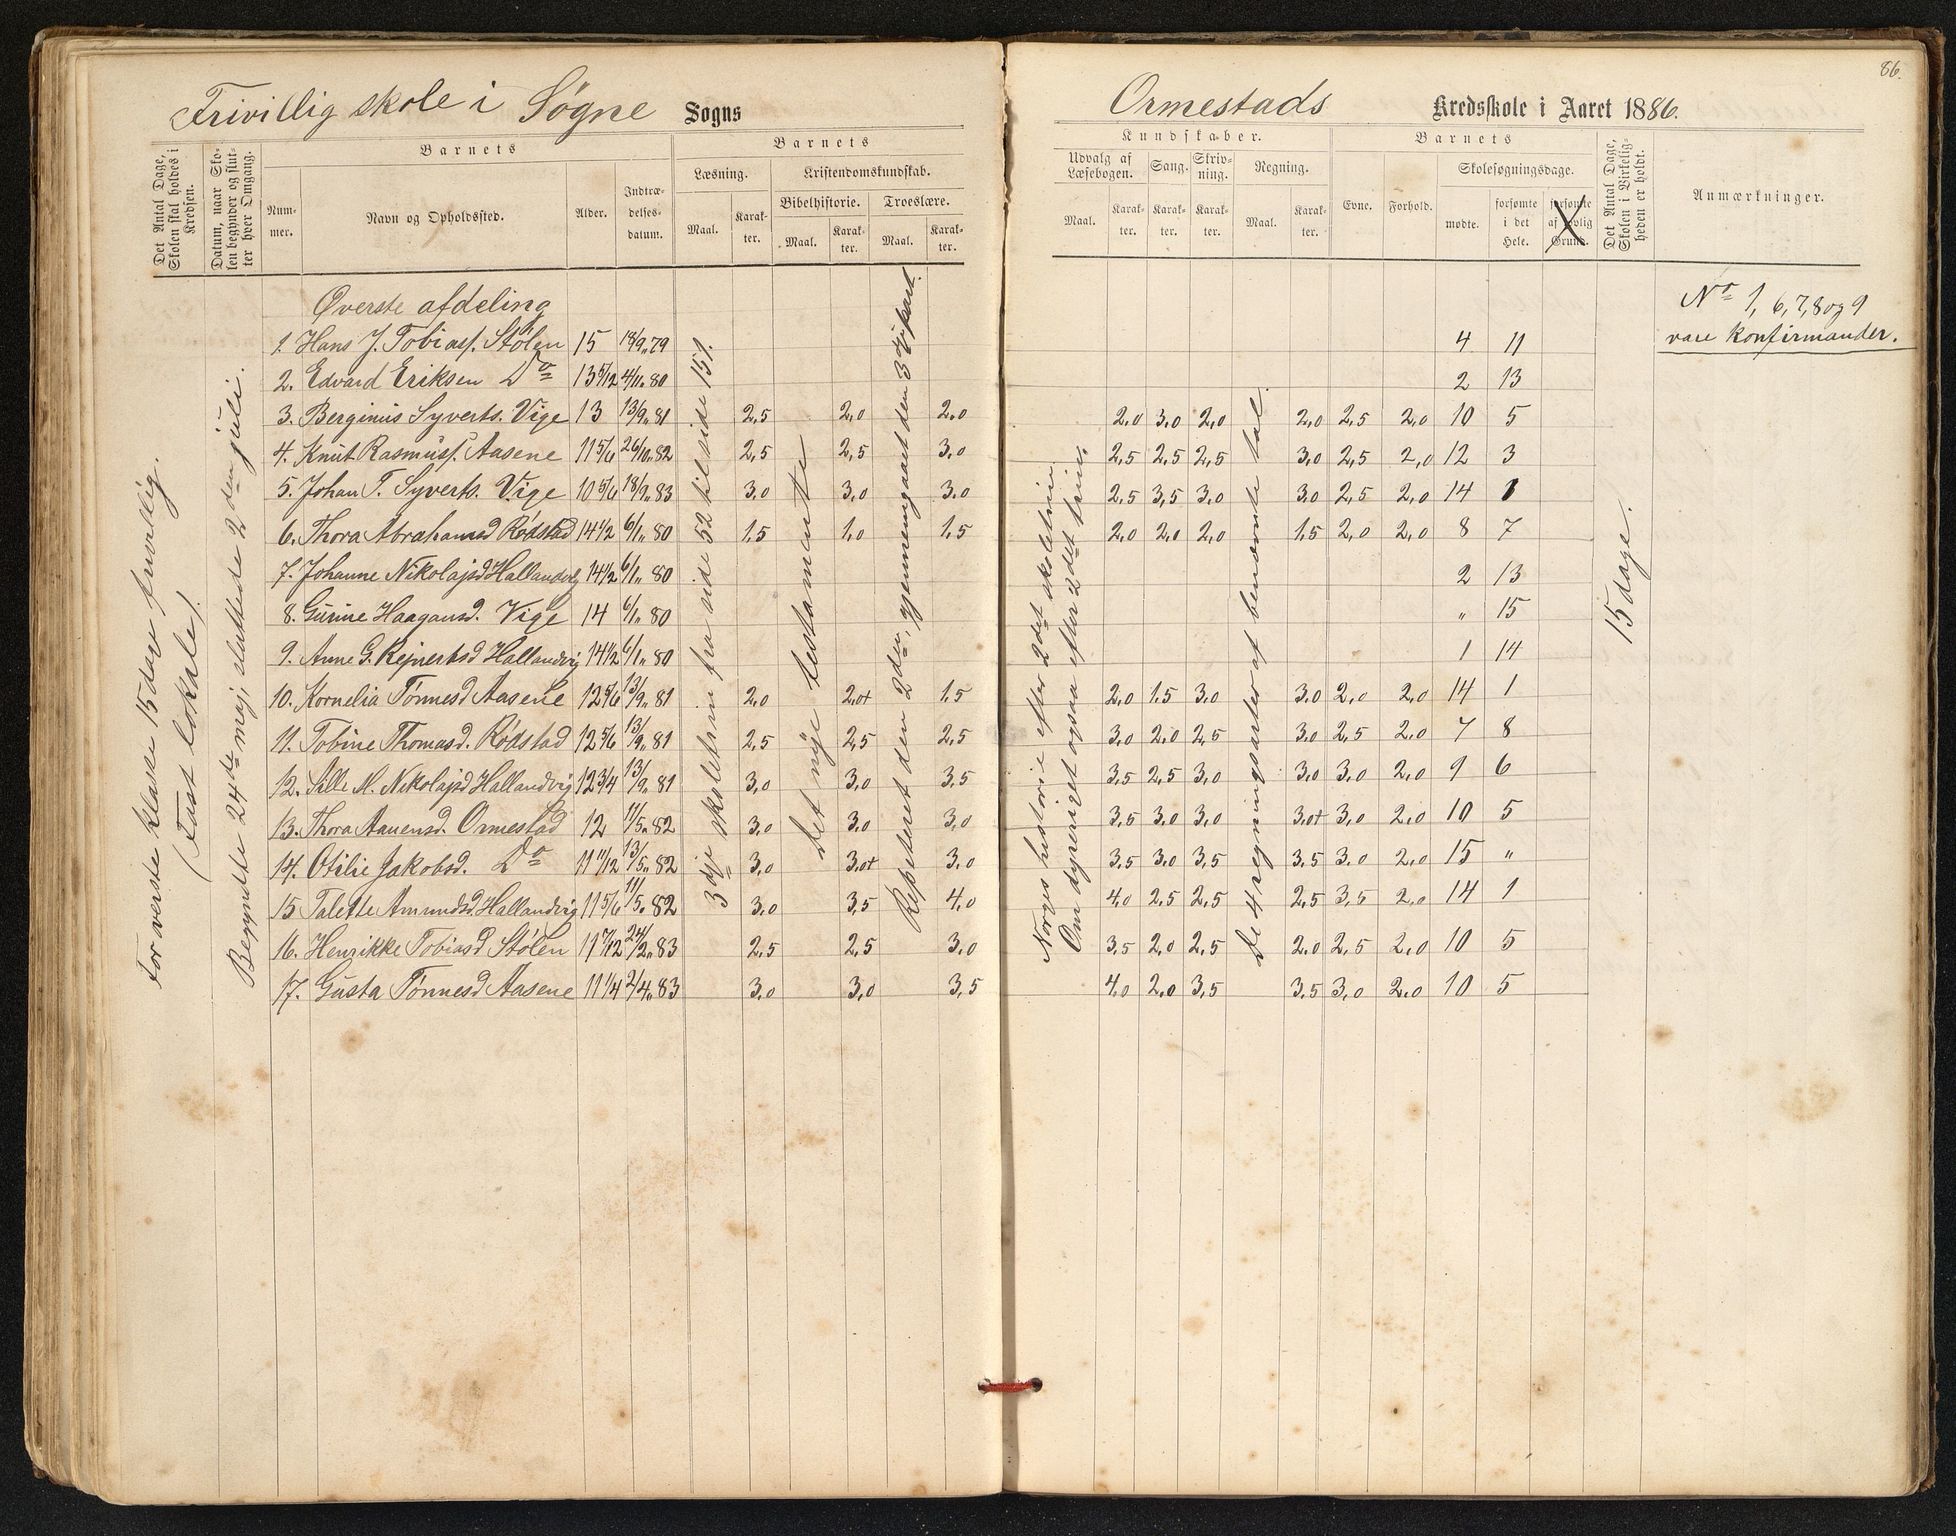 86.
Frivillig skole i Søgne Sogns
Ormestads Kredsskole i Aaret 1886.
Det Antal Dage, Skolen skal holdes i Kredsen.
Datum, naar Skolen begynder og slutter hver Omgang.
Barnets
Nummer.
Navn og Opholdssted.
Alder.
Indtrædelsesdatum.
Barnets
Læsning.
Maal.
Karakter.
Kristendomskundskab.
Bibelhistorie.
Maal.
Karakter.
Troeslære.
Maal.
Karakter.
Kundskaber.
Udvalg af Læsebogen.
Maal.
Karakter.
Sang.
Karakter.
Skrivning.
Karakter.
Regning.
Maal.
Karakter.
Barnets
Evne.
Forhold.
Skolesøgningsdage.
mødte.
forsømte i det Hele.
forsømte af lovlig Grund.
Det Antal Dage, Skolen i Virkeligheden er holdt.
Anmærkninger.
For øverste klasse 15 dage frivillig.
(Fast lokale)
Begyndte 24de maj, sluttede 2den juli.
3dje skoletrin fra side 52 til side 151.
Det nye testamente
Repeteret den 2den, gjennemgaaet den 3die part.
Norges historie efter 2det skoletrin.
Om dyreriget ogsaa efter 2det trin.
De 4 regningsarter af benævnte tal.
15 dage.
No 1, 6, 7, 8 og 9
vare konfirmander.
Øverste afdeling
1. Hans J. Tobiass. Stølen 15 18/9.. 79 4 11
2. Edvard Eriksen Do 13 5/12 4/11.. 80 2 13
3. Berginius Syverts. Vige 13 13/9.. 81 2,5 2,0 2,0 2,0 3,0 2,0 2,0 2,5 2,0 10 5
4. Knut Rasmuss. Aasene 11 5/6 26/10.. 82 2,5 2,5 3,0 2,5 2,5 2,5 3,0 2,5 2,0 12 3
5. Johan T. Syverts. Vige 10 5/6 18/9.. 83 3,0 3,0 3,0 2,5 3,5 3,0 3,0 2,5 2,0 14 1
6. Thora Abrahamsd Rødstad 14 1/2 6/1.. 80 1,5 1,0 1,5 2,0 2,0 2,0 1,5 2,0 2,0 8 7
7. Johanne Nikolajsd Hallandvig 14 1/2 6/1.. 80 2 13
8. Gurine Haagansd. Vige 14 6/1.. 80 " 15
9. Anne G. Rejnertsd Hallandvig 14 1/2 6/1.. 80 1 14
10. Kornelia Tønnesd Aasene 12 5/6 13/9.. 81 2,0 2,0+ 1,5 2,0 1,5 3,0 3,0 2,0 2,0 14 1
11. Tobine Thomasd. Rødstad 12 5/6 13/9.. 81 2,5 2,5 2,5 3,0 2,0 2,5 3,0 2,5 2,0 7 8
12. Sille M. Nikolajsd Hallandvig 12 3/4 13/9.. 81 3,0 3,0 3,5 3,5 2,5 3,0 3,0 3,0 2,0 9 6
13. Thora Aanensd. Ormestad 12 11/5.. 82 3,0 3,0 3,0 3,5 3,0 3,0 3,0+ 3,0 2,0 10 5
14. Otilie Jakobsd. Do 11 11/12 13/5.. 82 3,0 3,0+ 3,0 3,5 3,0 3,5 3,5 3,0 2,0 15 "
15 Talette Amundsd. Hallandvig 11 5/6 11/5.. 82 3,0 3,5 4,0 4,0 2,5 2,5 2,5 3,5 2,0 14 1
16. Henrikke Tobiasd Stølen 11 7/12 24/2.. 83 2,5 2,5 3,0 3,5 2,0 2,5 2,0 2,5 2,0 10 5
17. Gusta Tønnesd Aasene 11 1/4 2/4.. 83 3,0 3,0 3,5 4,0 2,0 3,5 3,5 3,0 2,0 10 5